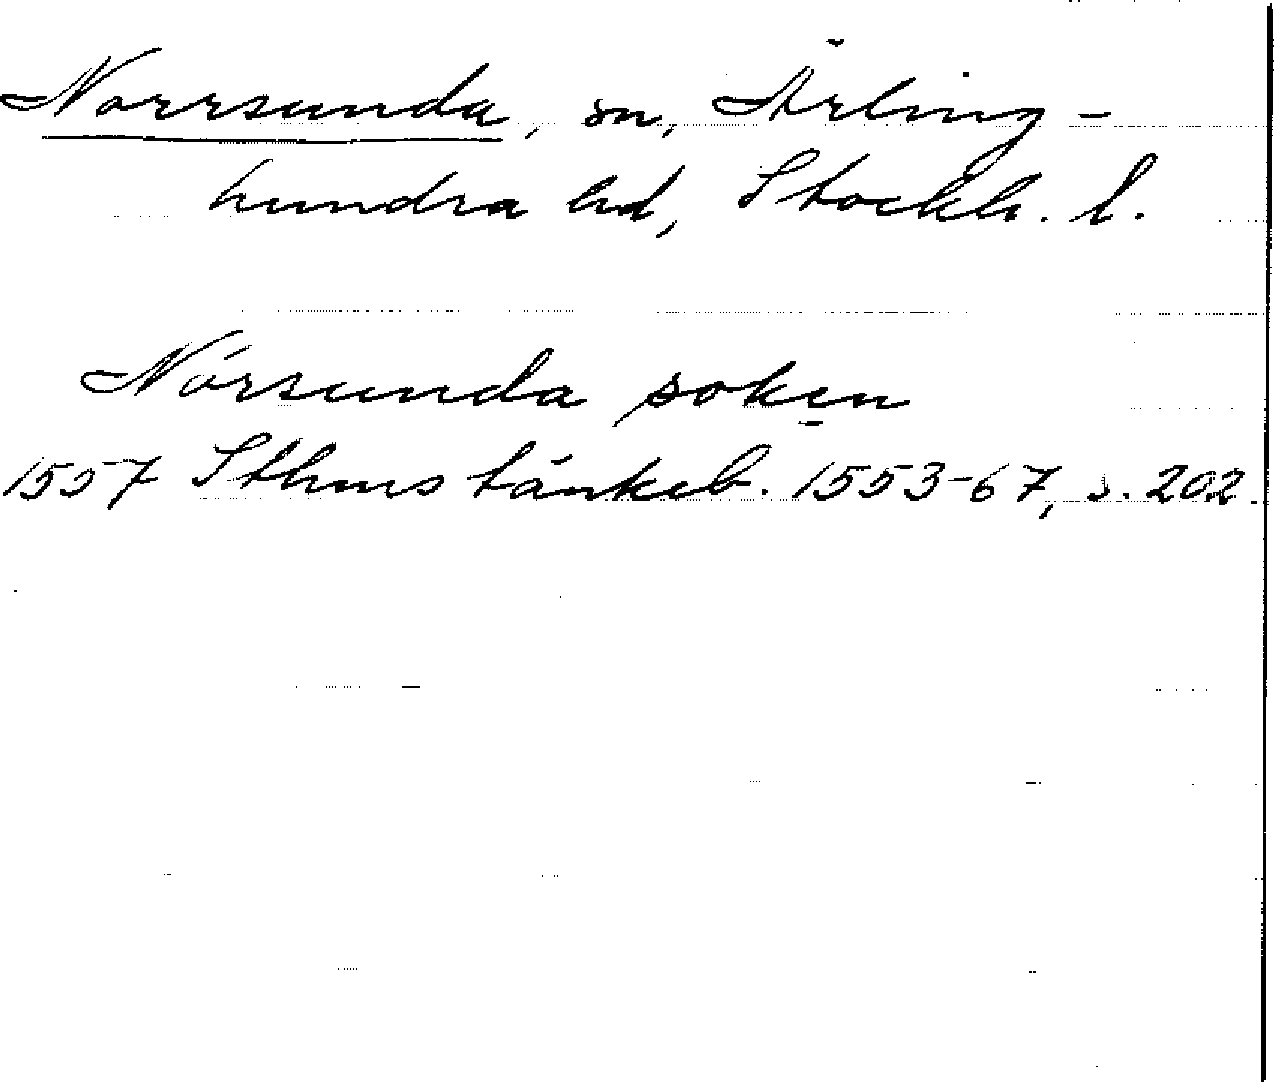 Norrsunda, sn, Ärling-
hundra hd, Stockh. l.
Nórsunda soken
1557 Sthms tänkeb. 1553-67, s. 202.